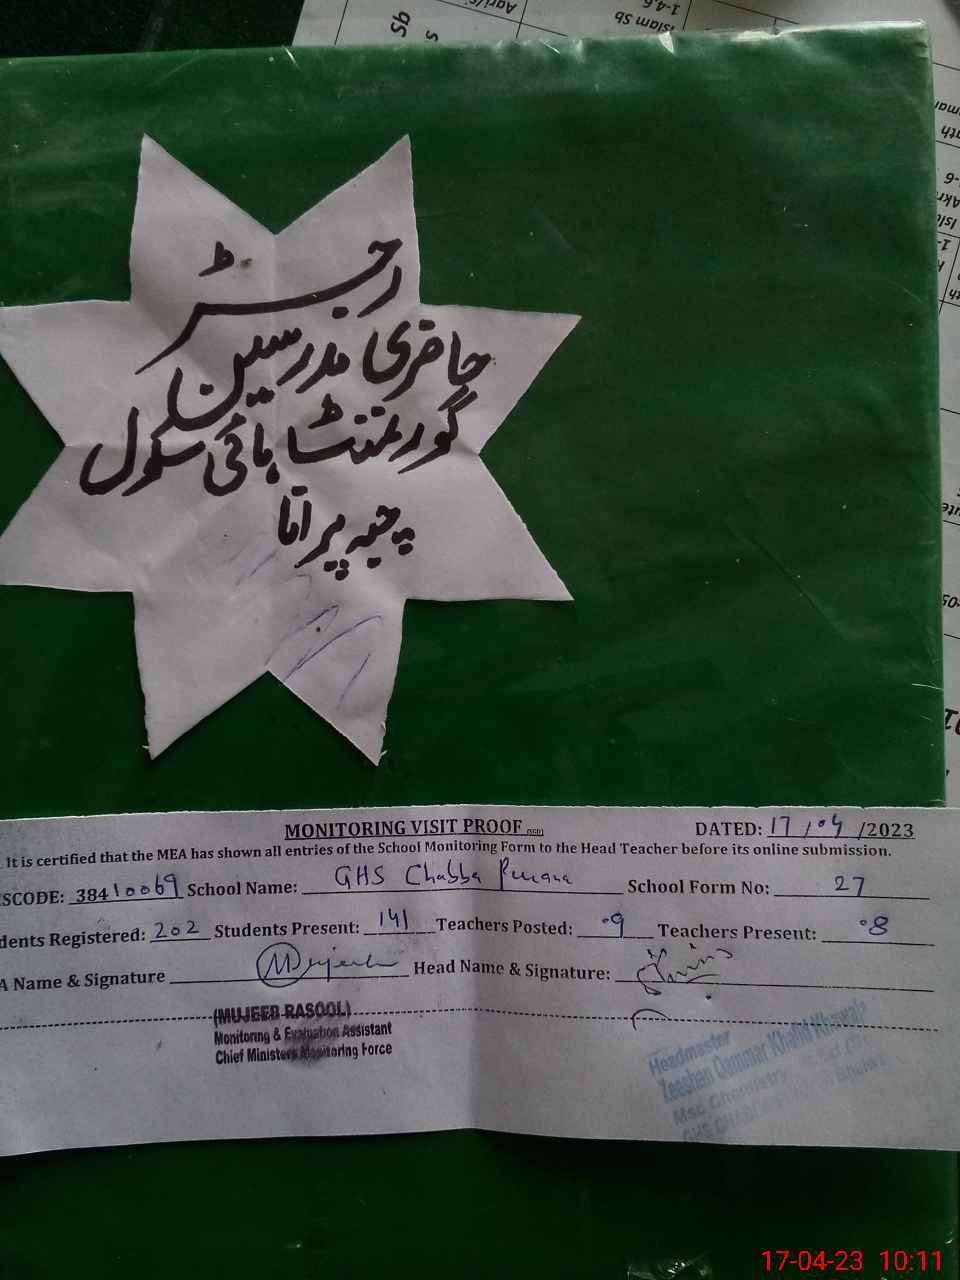 Sb
Agri/S
Islam Sb
1-4,6
رجسٹر
حاضری مدرسین
گورنمنٹ ہائی سکول
چبہ پرانا
MONITORING VISIT PROOF
DATED: 17/04/2023
It is certified that the MEA has shown all entries of the School Monitoring Form to the Head Teacher before its online submission.
SCODE: 38410069 School Name: GHS Chabba Purana School Form No: 27
dents Registered: 202 Students Present: 141 Teachers Posted: 09 Teachers Present: 08
A Name & Signature Mujeeb Head Name & Signature:
(MUJEEB RASOOL)
Monitoring & Evaluation Assistant
Chief Ministers Monitoring Force
Headmaster
Zeeshan Qammar Khalid Khawaja
Msc Chemistry
GHS
17-04-23 10:11